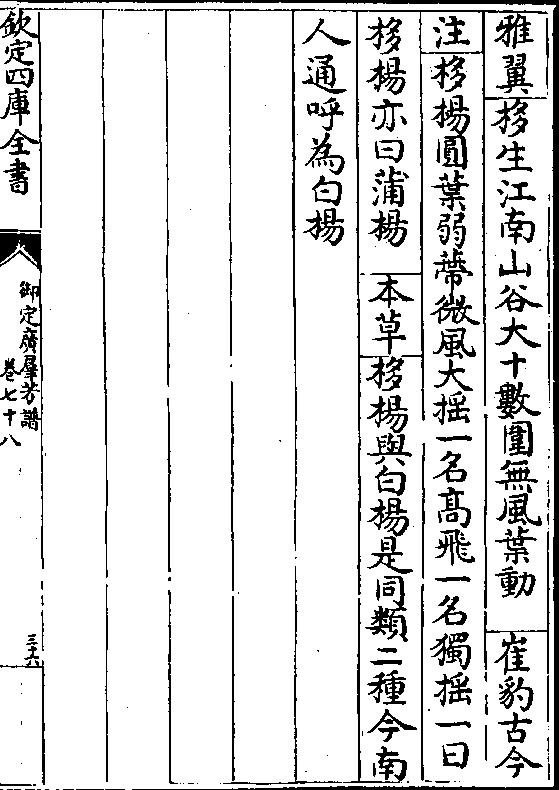 雅翼栘生江南山谷大十數圍無風葉動　崔豹古今
注栘楊圓葉弱蔕微風大揺一名髙飛一名獨揺一曰
栘楊亦曰蒲楊　本草栘楊與白楊是同類二種今南
人通呼為白楊
欽定四庫全書
御定廣羣芳譜
卷七十八
三十六